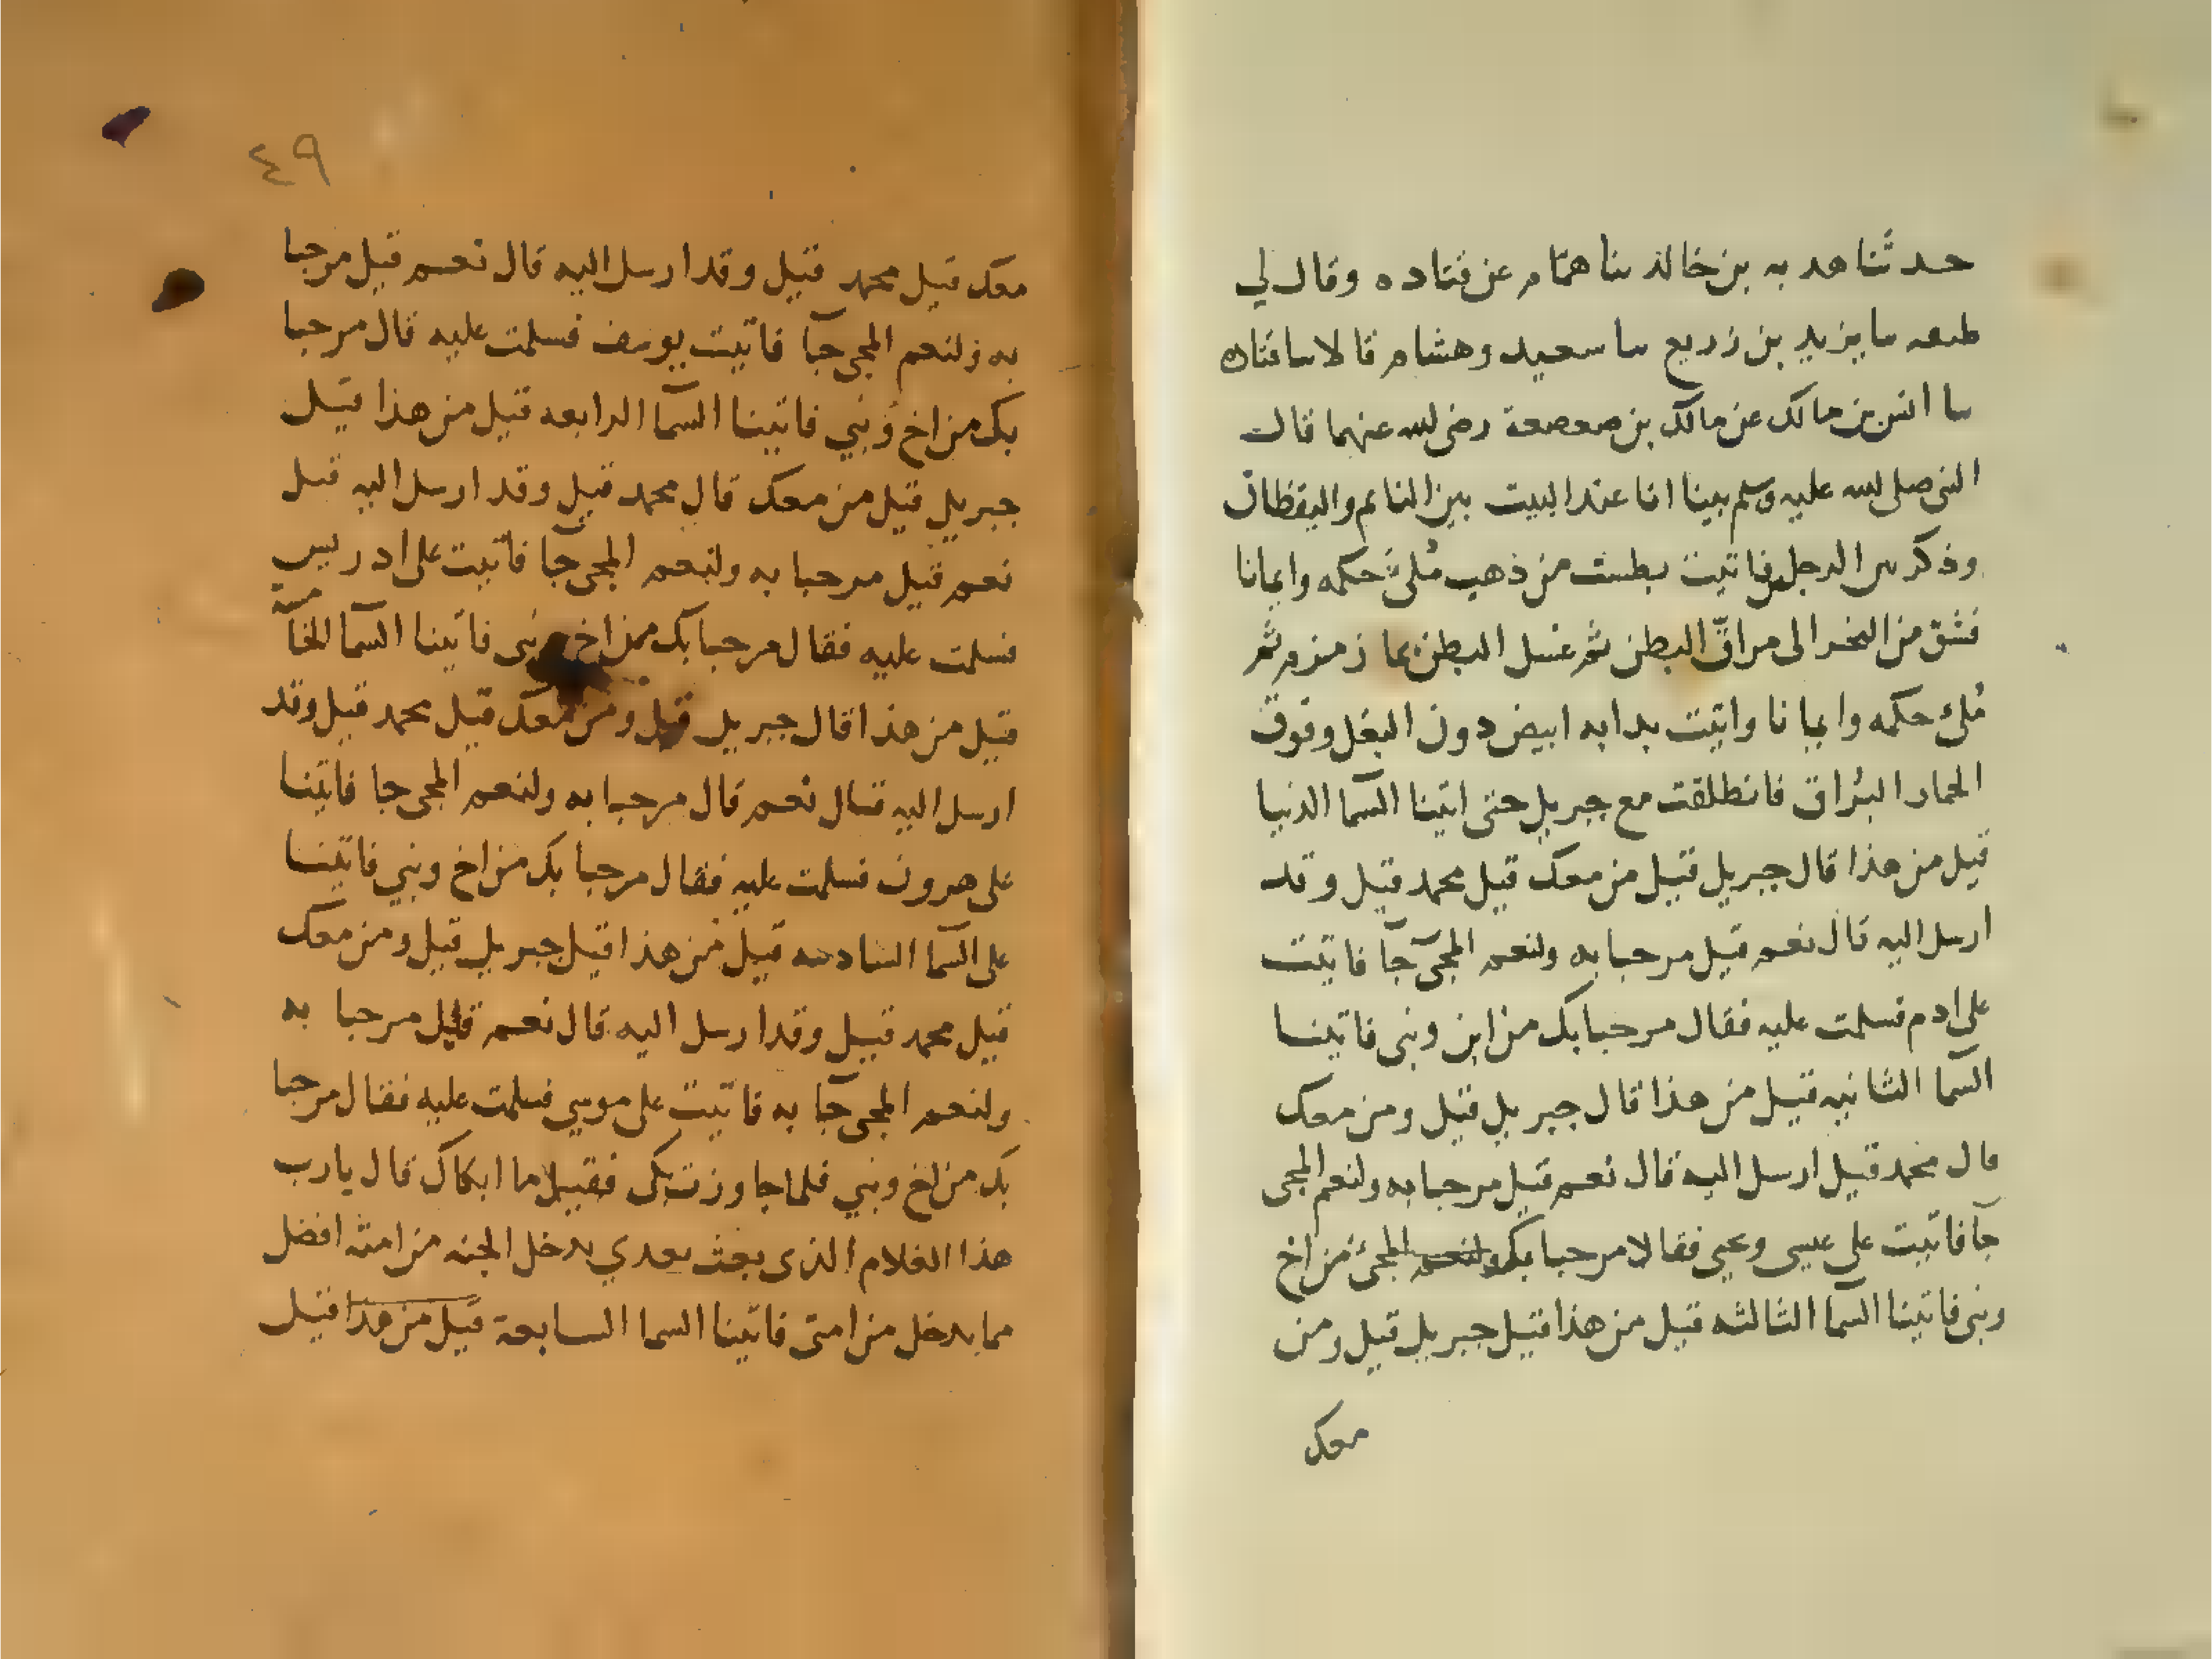 حدثنا هدبه بن خالد ثنا همام عن قتاده وقال لي
خليفه ثنا يزيد بن زريع ثنا سعيد وهشام قالا ثنا قتاده
ثنا انس بن مالك عن مالك بن صعصعة رضي الله عنهما قال
النبي صلى الله عليه وسلم بينا انا عند البيت بين النائم واليقظان
وذكر بين الرجلين فاتيت بطست من ذهب مُلئ حكمه وايمانا
فشق من النحر الى مراقّ البطن ثم غسل البطن بما زمزم ثم
مُلئ حكمه وايمانا واتيت بدابه ابيض دون البغل وفوق
الحمار البُراق فانطلقت مع جبريل حتى اتينا السما الدنيا
قيل من هذا قال جبريل قيل من معك قيل محمد قيل وقد
ارسل اليه قال نعم قيل مرحبا به ولنعم المجي جآ فاتيت
على ادم فسلمت عليه فقال مرحبا بك من ابن ونبي فاتينا
السما الثانيه قيل من هذا قال جبريل قيل ومن معك
قال محمد قيل ارسل اليه قال نعم قيل مرحبا به ولنعم المجي
جآ فاتيت على عيسى ويحيى فقالا مرحبا بك ولنعم المجئ من اخ
ونبي فاتينا السما الثالثه قيل من هذا قيل جبريل قيل ومن
معك
٤٩
معك قيل محمد قيل وقد ارسل اليه قال نعم قيل مرحبا
به ولنعم المجي جآ فاتيت يوسف فسلمت عليه قال مرحبا
بك من اخ ونبي فاتينا السما الرابعه قيل من هذا قيل
جبريل قيل من معك قال محمد قيل وقد ارسل اليه قيل
نعم قيل مرحبا به ولنعم المجي جآ فاتيت على ادريس
فسلمت عليه فقال مرحبا بك من اخ ونبي فاتينا السما الخامسة
قيل من هذا قال جبريل قيل ومن معك قيل محمد قيل وقد
ارسل اليه قال نعم قال مرحبا به ولنعم المجي جا فاتينا
على هرون فسلمت عليه فقال مرحبا بك من اخ ونبي فاتينا
على السما السادسه قيل من هذا قيل جبريل قيل ومن معك
قيل محمد قيل وقد ارسل اليه قال نعم قيل مرحبا به
ولنعم المجي جآ به فاتيت على موسى فسلمت عليه فقال مرحبا
بك من اخ ونبي فلما جاوزت بكى فقيل ما ابكاك قال يارب
هذا الغلام الذي بعث بعدي يدخل الجنه من امته افضل
مما يدخل من امتى فاتينا السما السابعة قيل من هذا قيل